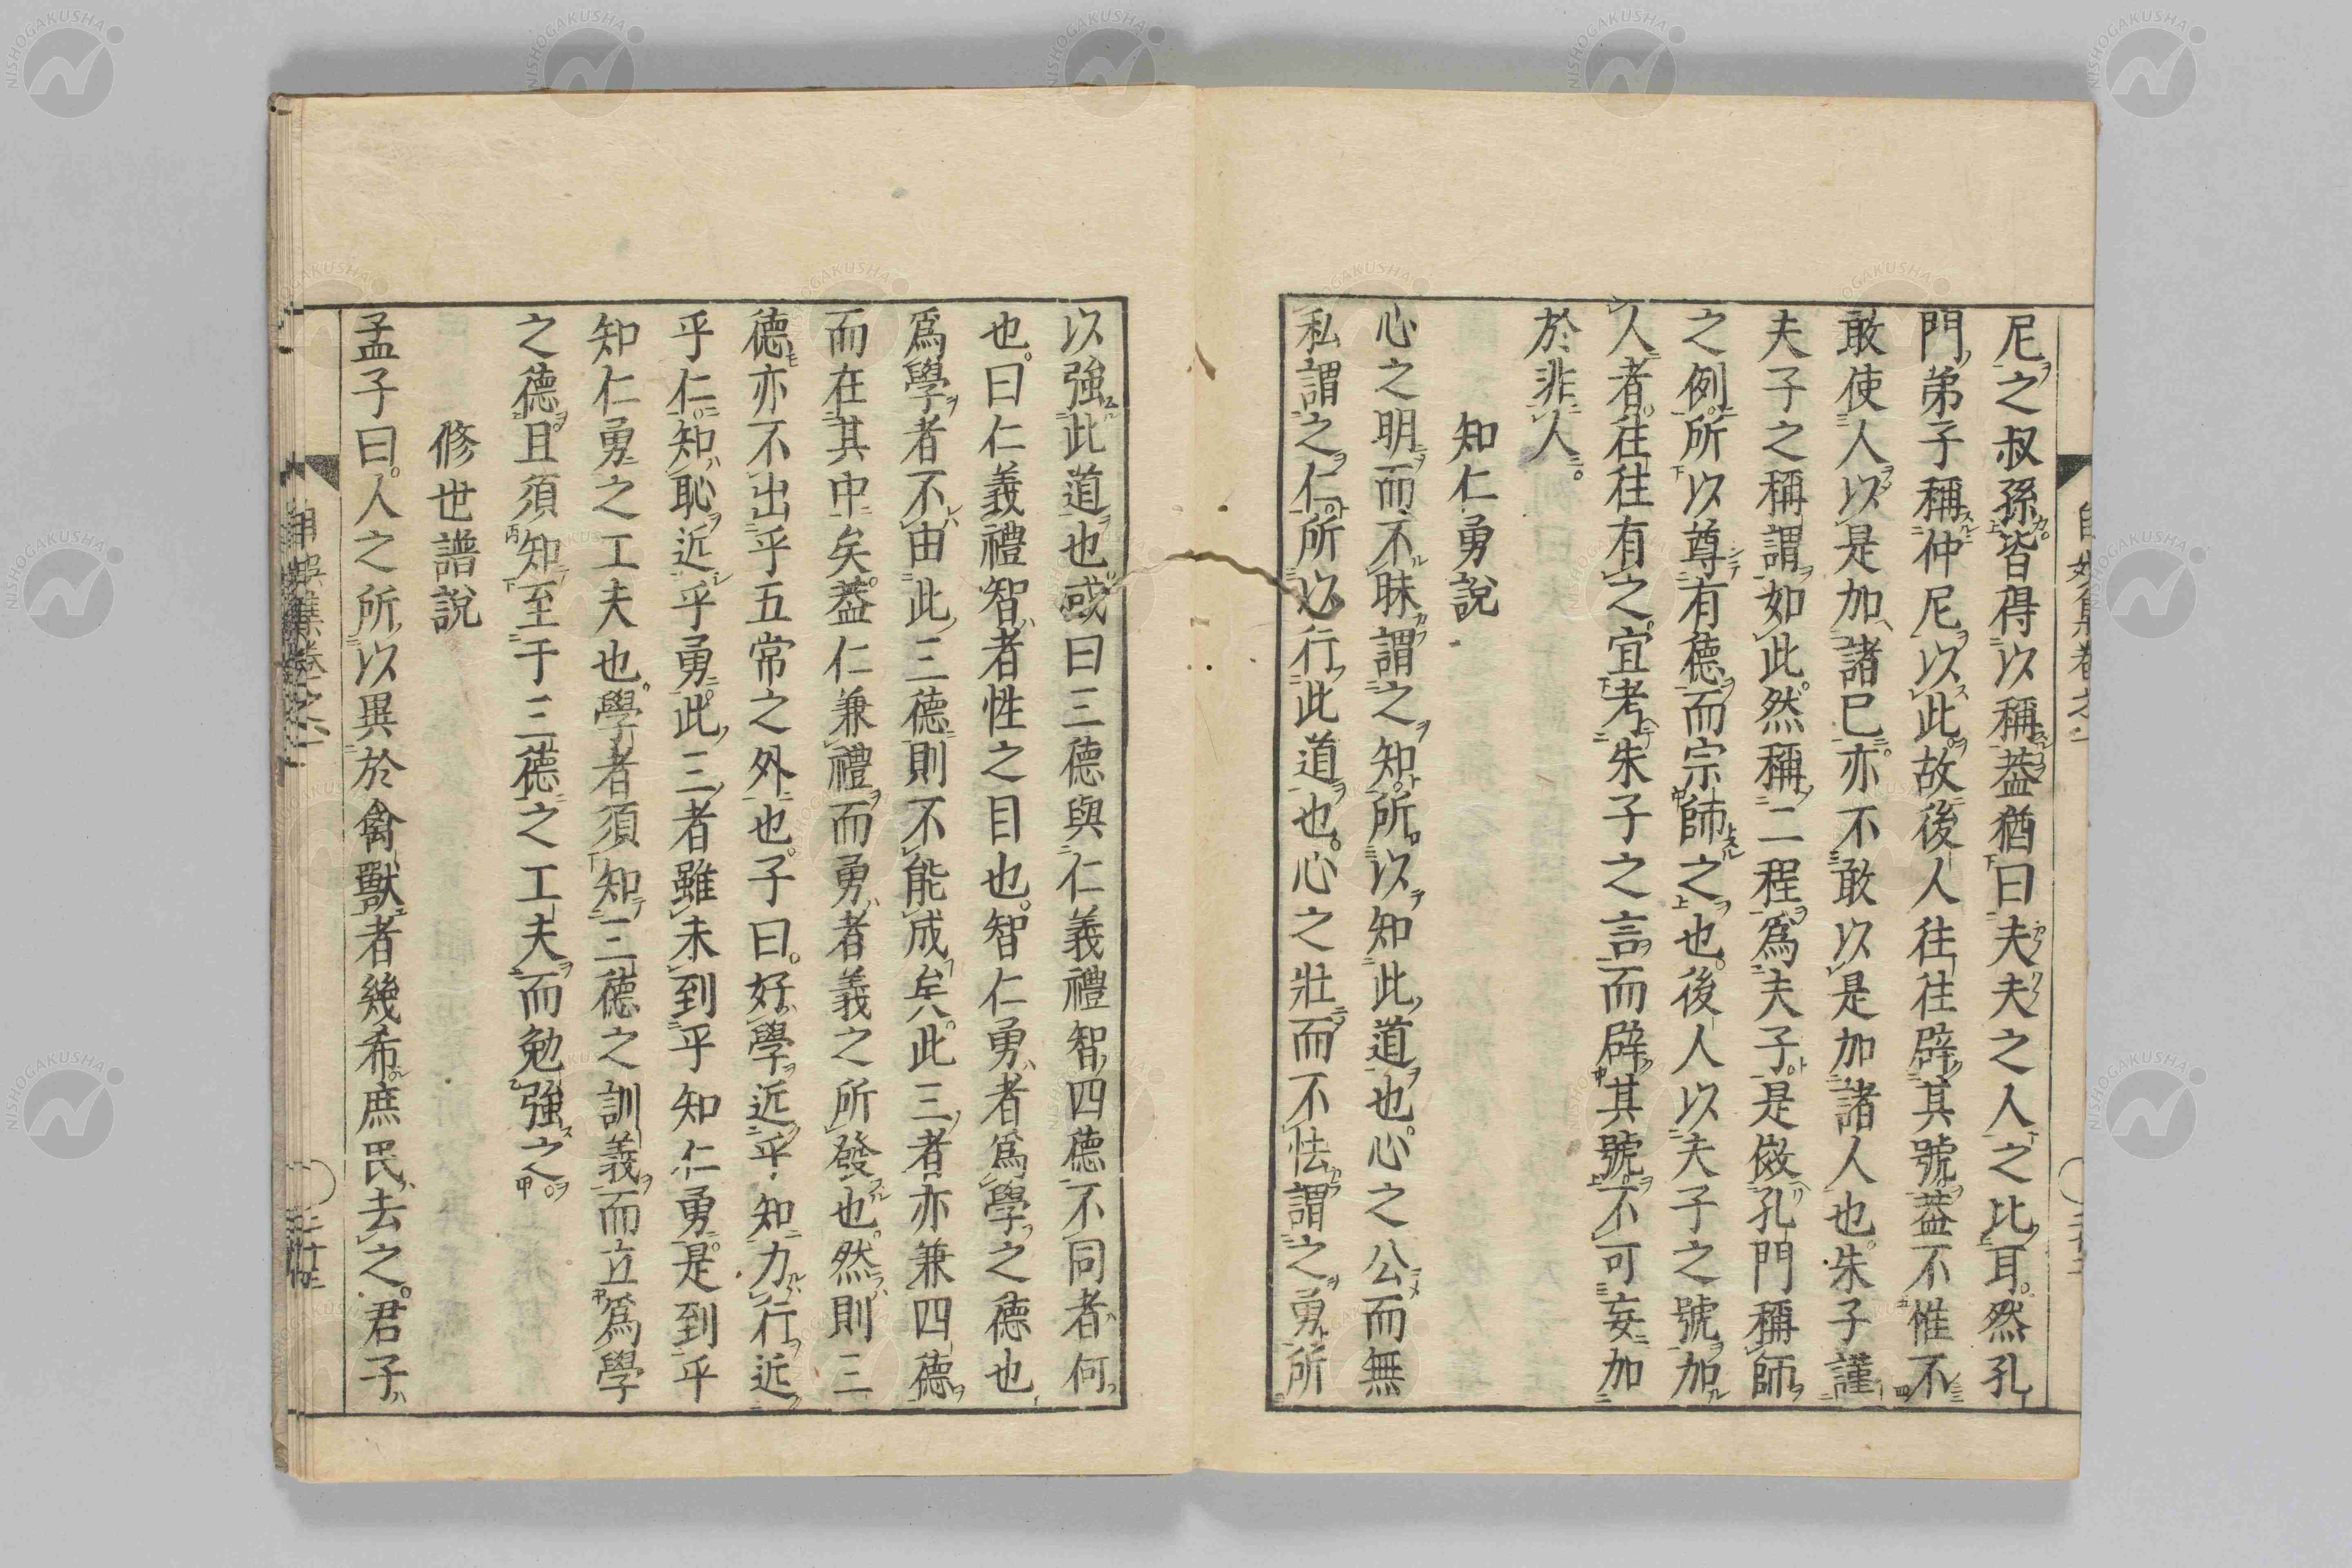 尼之叔孫皆得以稱蓋猶曰夫夫之人之比耳然孔
門弟子稱仲尼以此故後人往往辟其號蓋不惟不
敢使人以是加諸已亦不敢以是加諸人也朱子謹
夫子之稱謂如此然稱二程爲夫子是倣孔門稱師
之例所以尊有德而宗師之也後人以夫子之號加
人者往往有之宜考朱子之言而辟其號不可妄加
於非人
知仁勇說
心之明而不昧謂之知所以知此道也心之公而無
私謂之仁所以行此道也心之壯而不怯謂之勇所
以強此道也或曰三德與仁義禮智四德不同者何
也曰仁義禮智者性之目也智仁勇者爲學之德也
爲學者不由此三德則不能成矣此三者亦兼四德
而在其中矣蓋仁兼禮而勇者義之所發也然則三
德亦不出乎五常之外也子曰好學近乎知力行近
乎仁知恥近乎勇此三者雖未到乎知仁勇是到乎
知仁勇之工夫也學者須知三德之訓義而立爲學
之德且須知至于三德之工夫而勉強之
修世譜說
孟子曰人之所以異於禽獸者幾希庶民去之君子
NISHOGAKUSHA